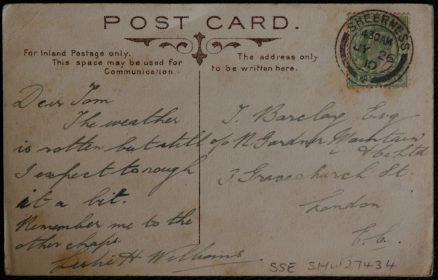 POST CARD.
For Inland Postage only.
This space may be used for
Communication.
The address only
to be written here.
SHEERNESS
4.30 AM
JY 26
10
Dear Tom
The weather
is rotten but still
I expect to rough
it a bit.
Remember me to the
other chaps.
Leslie H. Williams
T. Barclay Esq
c/o N. Gardner Mountain
& Co Ltd
3 Gracechurch St.
London
E.C.
SSE SHW27434